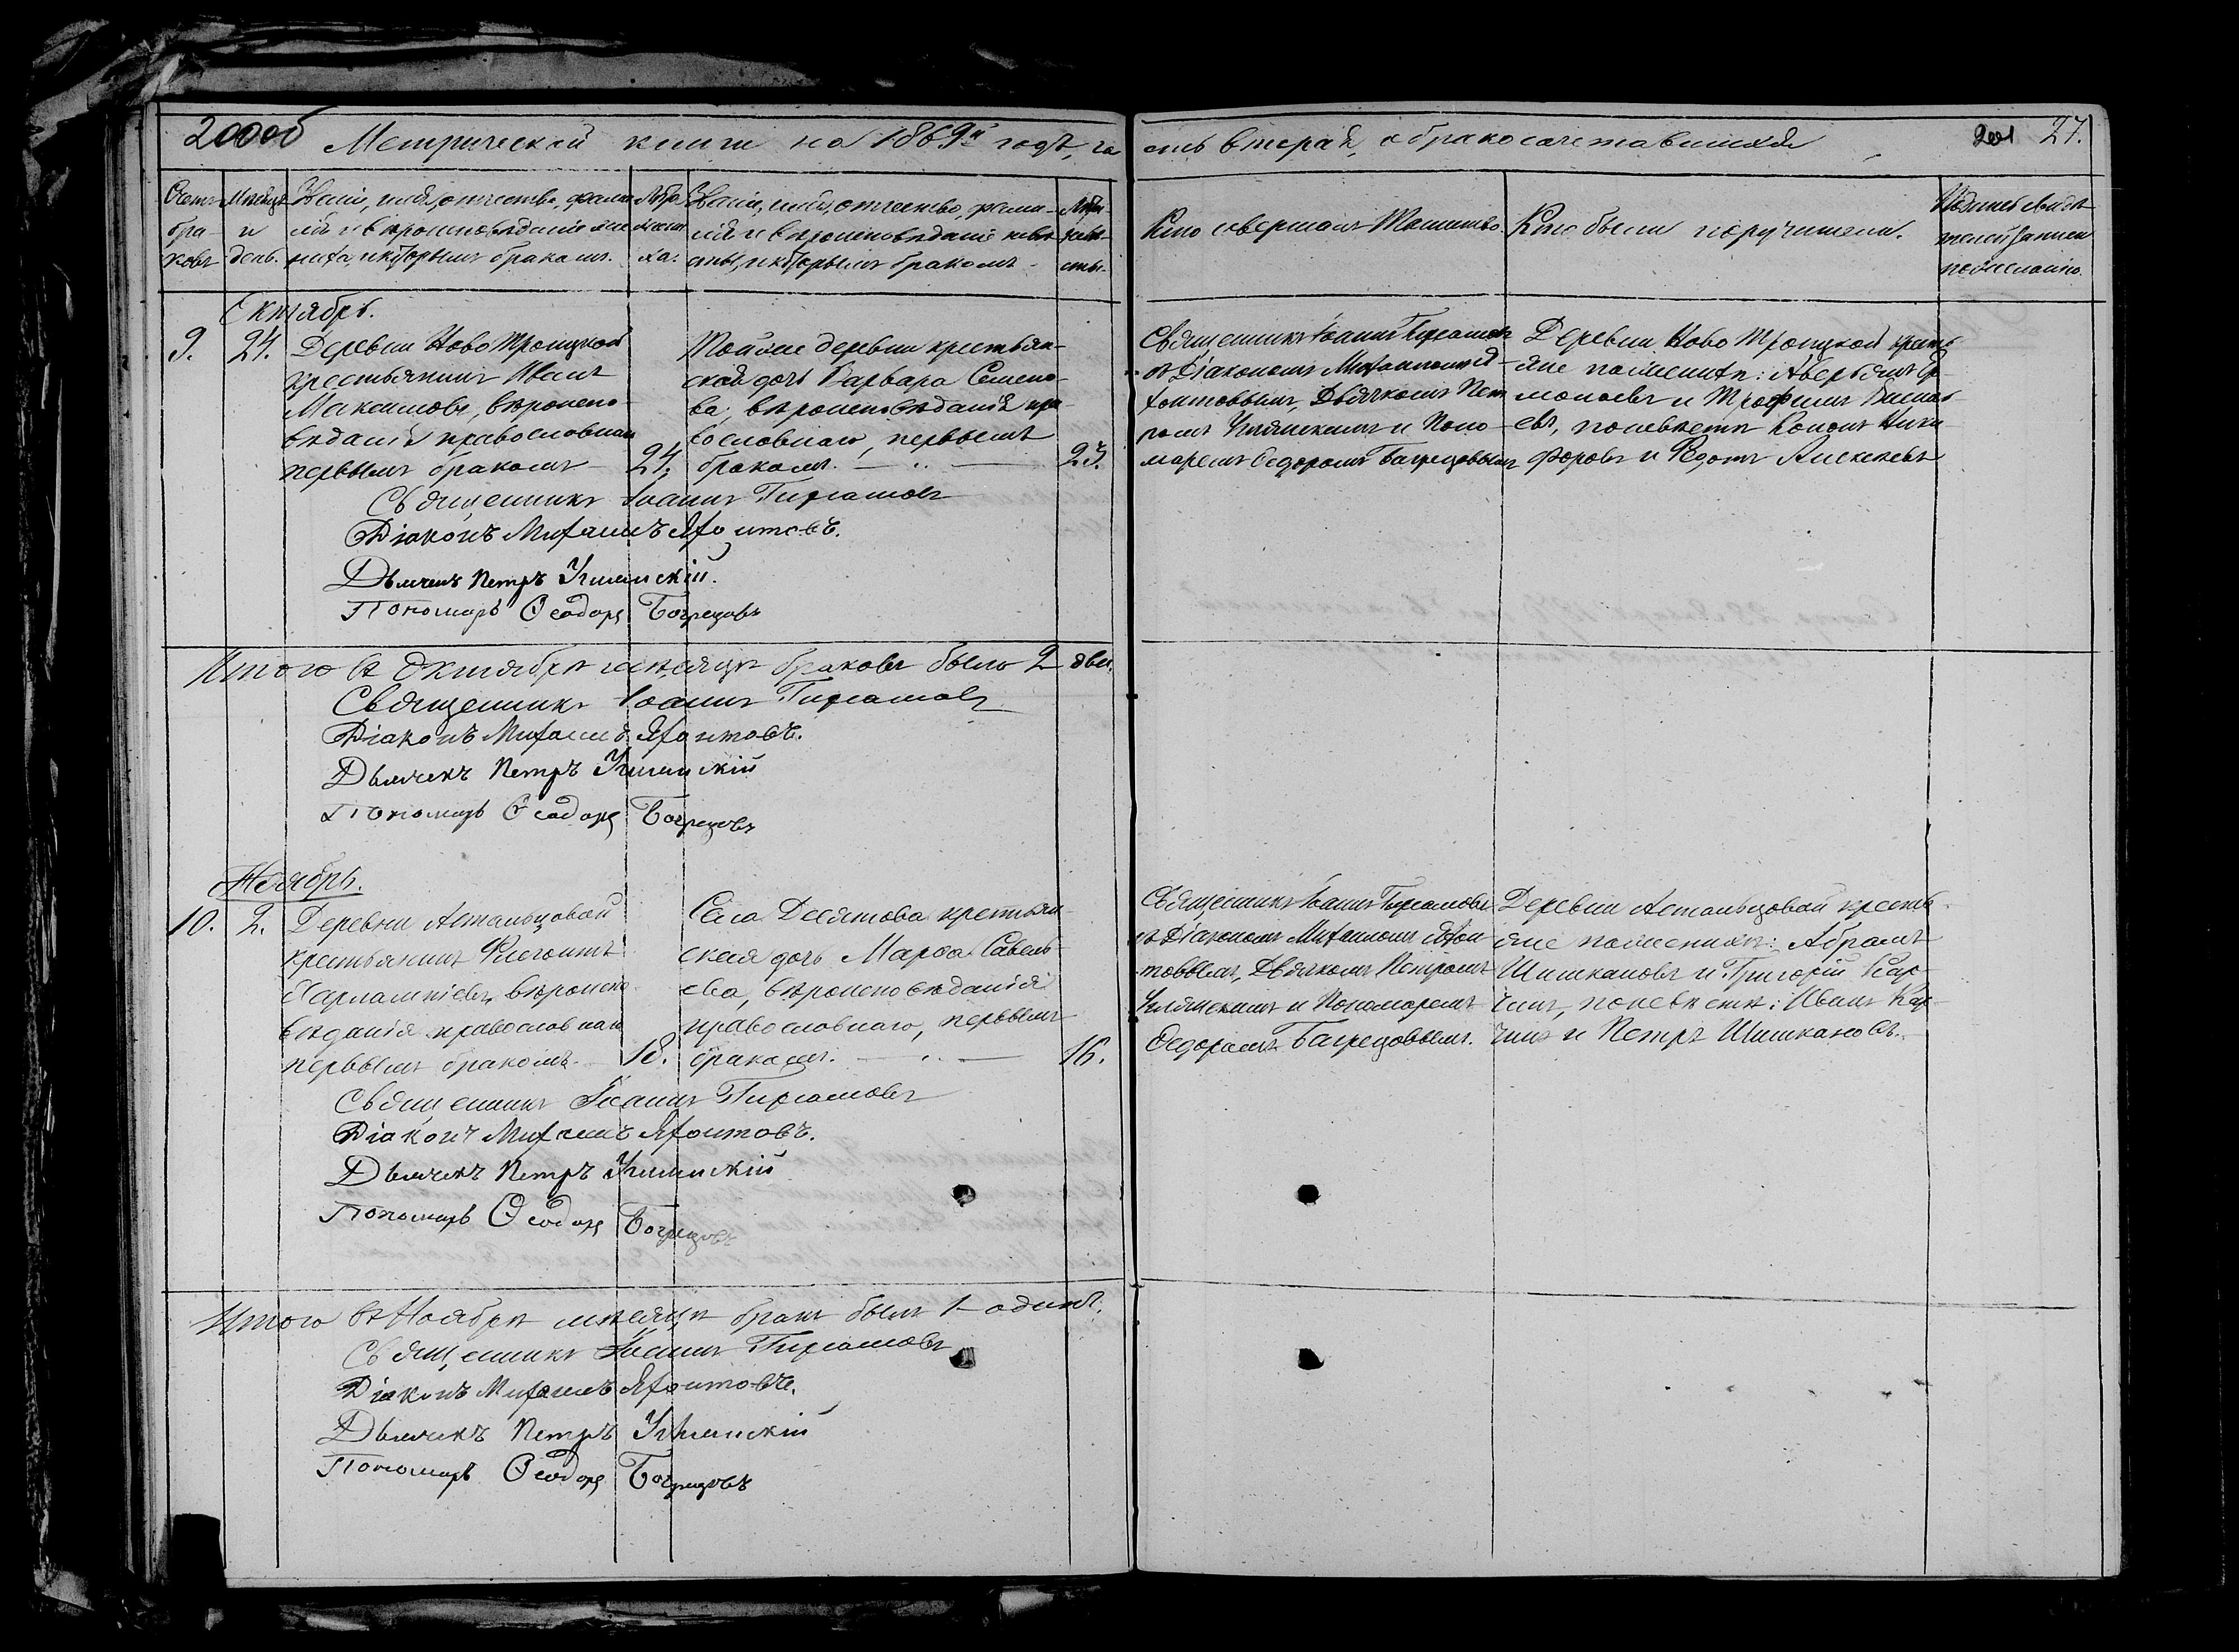 200об Метрической книги на 1869й годъ, часть вторая, о бракосочетавшихся 201 27.
Счетъ браковъ
Мѣсяцъ и день.
Званіе, имя, отчество, фамилія и вѣроисповѣданіе жениха, и которымъ бракомъ.
Лѣта жениха.
Званіе, имя, отчество, фамилія и вѣроисповѣданіе невѣсты, и которымъ бракомъ.
Лѣта невѣсты.
Кто совершалъ Таинство.
Кто были поручители.
Подпись свидѣтелей записи по желанію.
Октябрь.
9. 24.
Деревни Ново Троицкой
крестьянинъ Иванъ
Максимовъ, вѣроиспо-
вѣданія православнаго
первымъ бракомъ
24.
Той же деревни крестьян-
ская дочь Варвара Семено-
ва, вѣроисповѣданія пра-
вославнаго, первымъ
бракомъ.
23.
Священникъ Іоаннъ
съ Діакономъ Михаиломъ Я-
хонтовымъ, Дьячкомъ Пет-
ромъ и Поно-
маремъ Ѳедоромъ Багрецовымъ
Деревни Ново Троицкой кресть-
яне по женихѣ: Аверьянъ
и Трофимъ
евъ, по невѣстѣ Кононъ Ники-
форовъ и Ѳедотъ Алексѣевъ
Священникъ Іоаннъ
Діаконъ Михаилъ Яхонтовъ.
Дьячекъ Петръ
Пономарь Ѳеодоръ Багрецовъ
Итого въ Октябрѣ мѣсяцѣ браковъ было 2 два.
Священникъ Іоаннъ
Діаконъ Михаилъ Яхонтовъ.
Дьячекъ Петръ
Пономарь Ѳеодоръ Багрецовъ
Ноябрь.
10. 2.
Деревни Астальцовой
крестьянинъ Флегонтъ
Харлампіевъ, вѣроиспо-
вѣданія православнаго
первымъ бракомъ.
18.
Села Десятова крестьян-
ская дочь Марѳа Савель-
ева, вѣроисповѣданія
православнаго, первымъ
бракомъ.
16.
Священникъ Іоаннъ
съ Діакономъ Михаиломъ Яхон-
товымъ, Дьячкомъ Петромъ
и Пономаремъ
Ѳедоромъ Багрецовымъ.
Деревни Астальцовой кресть-
яне по женихѣ: Абрамъ
Шишкановъ и Григорій Кар-
чинъ, по невѣстѣ: Иванъ Кар-
чинъ и Петръ Шишкановъ.
Священникъ Іоаннъ
Діаконъ Михаилъ Яхонтовъ.
Дьячекъ Петръ
Пономарь Ѳеодоръ Багрецовъ
Итого въ Ноябрѣ мѣсяцѣ бракъ былъ 1 одинъ.
Священникъ Іоаннъ
Діаконъ Михаилъ Яхонтовъ.
Дьячекъ Петръ
Пономарь Ѳеодоръ Багрецовъ